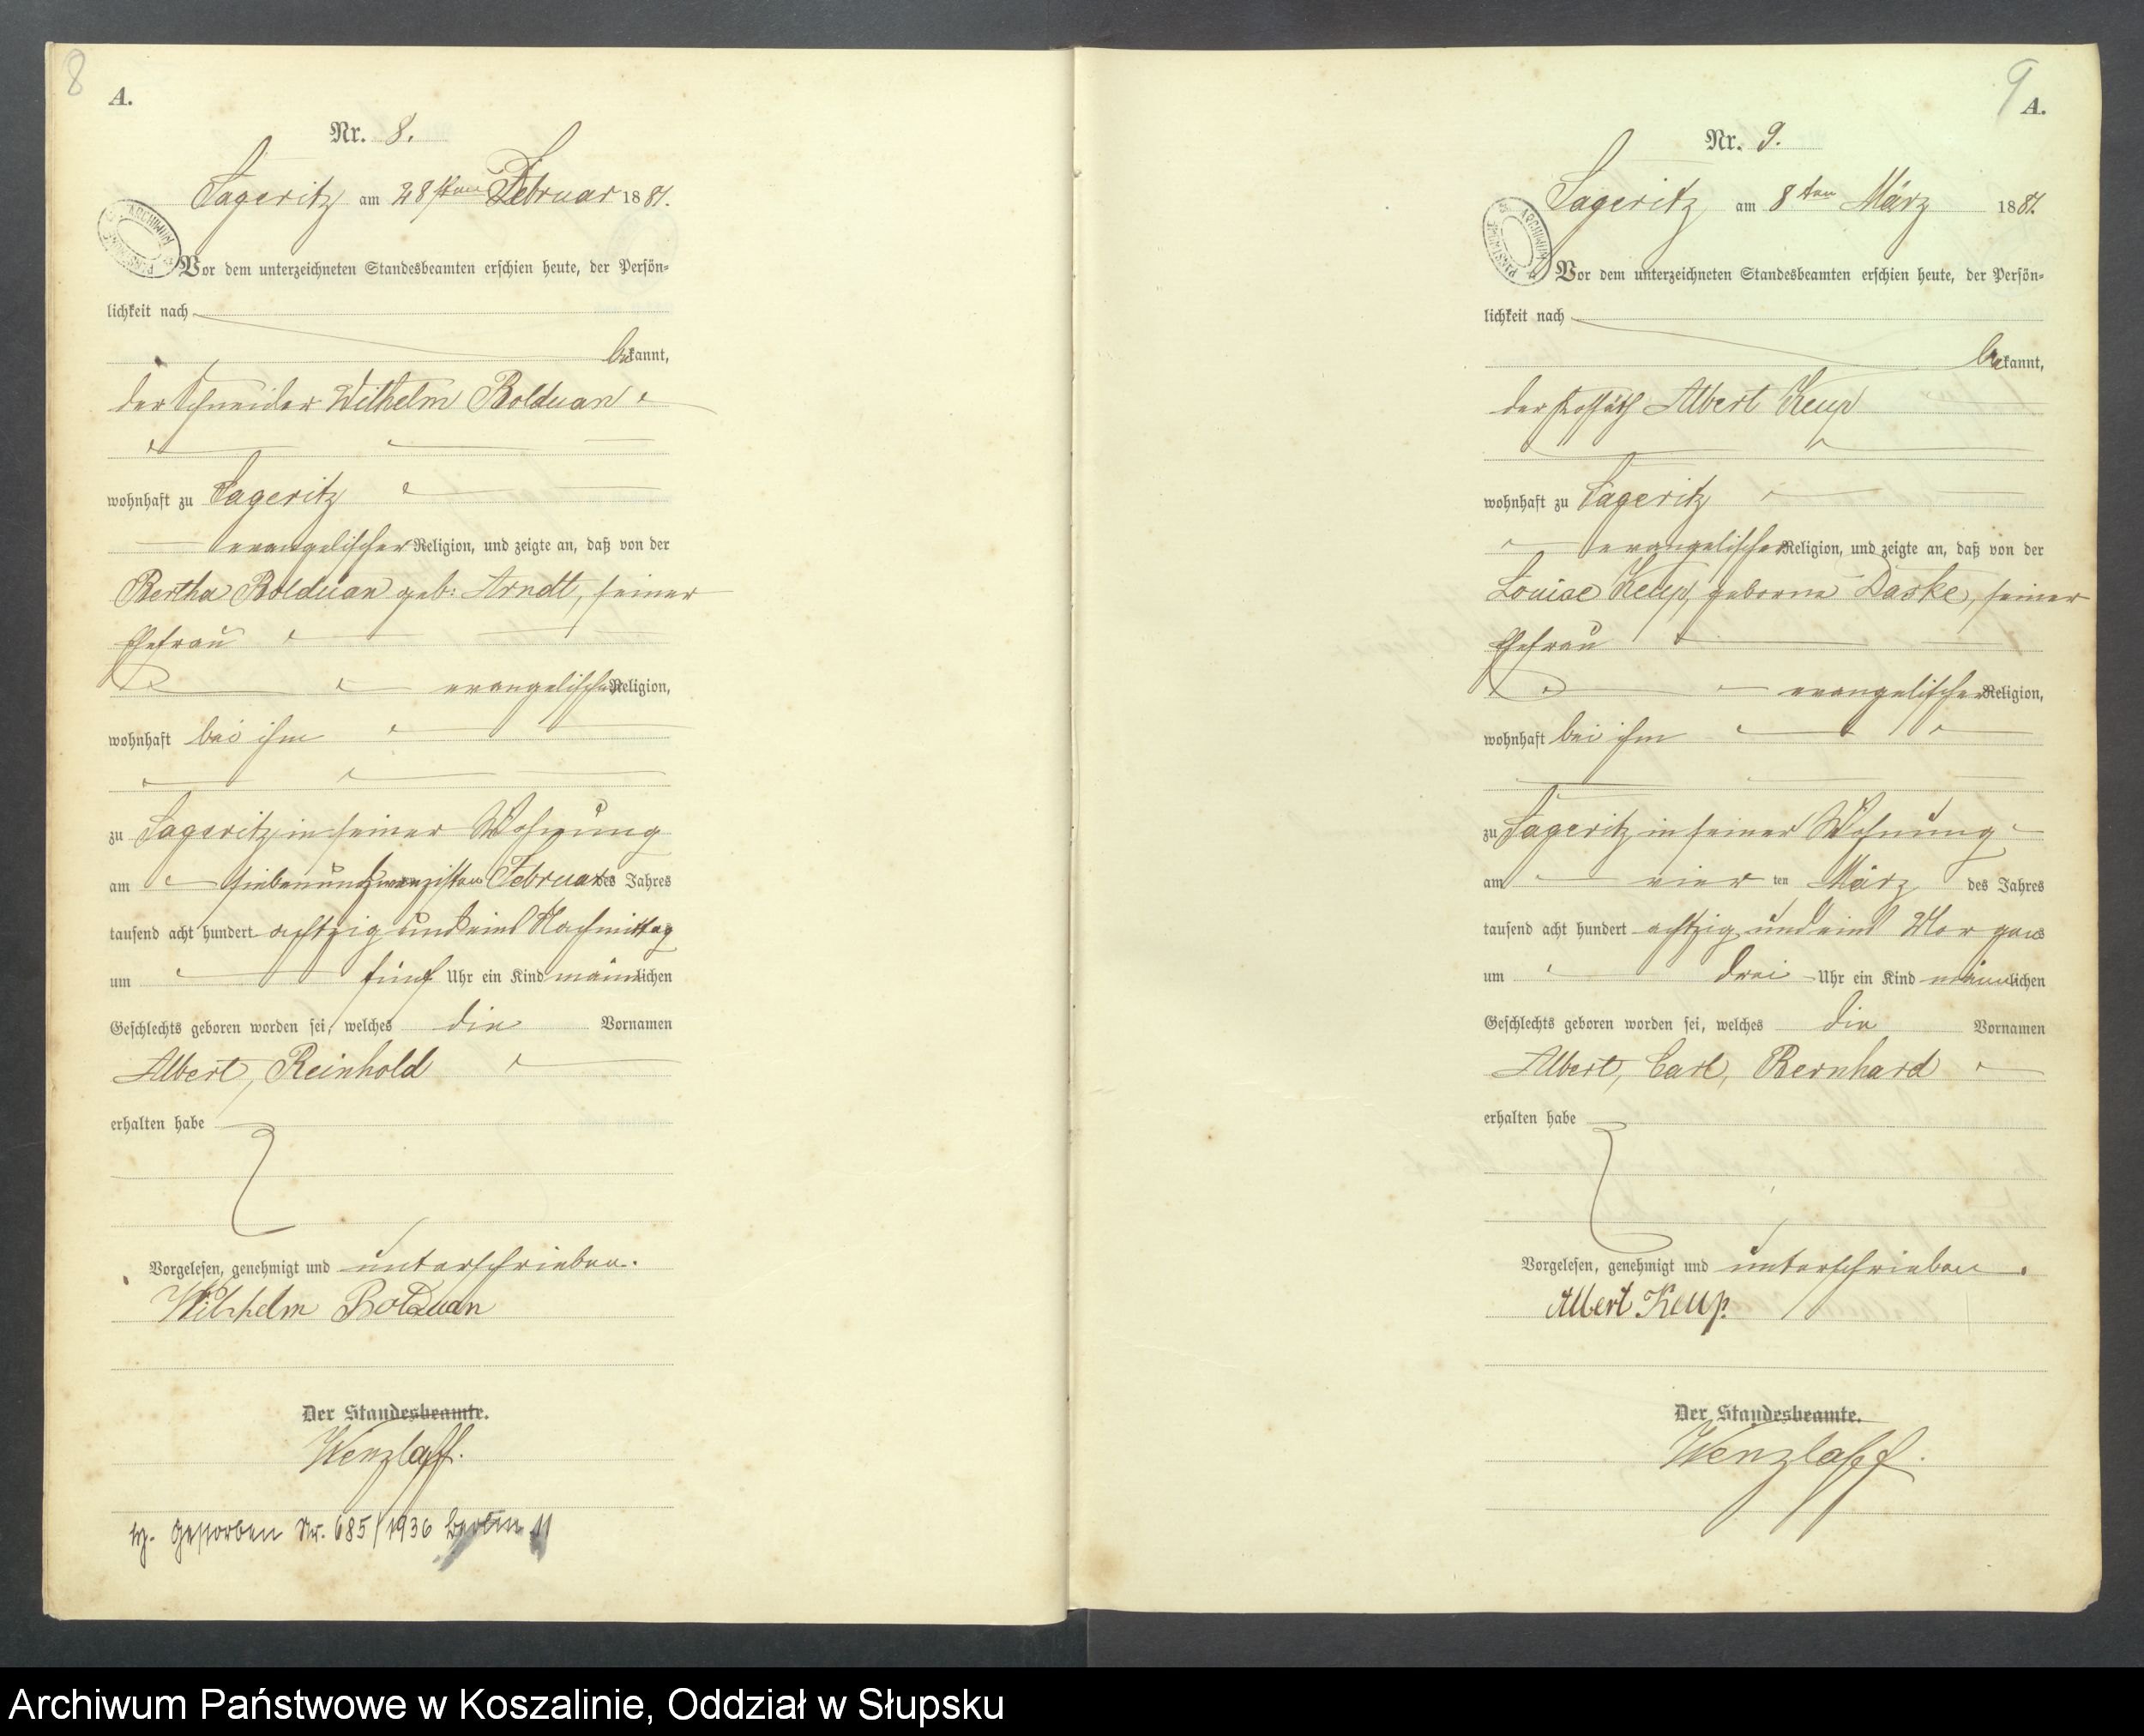 8
A.
Nr. 8.
Sageritz am 28sten Februar 1881.
ARCHIWUM PAŃSTWOWE
Vor dem unterzeichneten Standesbeamten erschien heute, der Persön=
lichkeit nach
bekannt,
der Schneider Wilhelm Bolduan
wohnhaft zu Sageritz
evangelischer Religion, und zeigte an, daß von der
Bertha Bolduan geb: Arndt, seiner
Ehefrau
evangelischer Religion,
wohnhaft bei ihm
zu Sageritz in seiner Wohnung
am siebenundzwanzigsten Februar des Jahres
tausend acht hundert achtzig und eins Nachmittag
um fünf Uhr ein Kind männlichen
Geschlechts geboren worden sei, welches die Vornamen
Albert, Reinhold
erhalten habe
Vorgelesen, genehmigt und unterschrieben.
Wilhelm Bolduan
Der Standesbeamte.
Wenzlaff.
gestorben Nr. 685/1936 Berlin
9
A.
Nr. 9.
Sageritz am 8ten März 1881.
ARCHIWUM PAŃSTWOWE
Vor dem unterzeichneten Standesbeamten erschien heute, der Persön=
lichkeit nach
bekannt,
der Kossäth Albert Keup
wohnhaft zu Sageritz
evangelischer Religion, und zeigte an, daß von der
Louise Keup, geborne Daske, seiner
Ehefrau
evangelischer Religion,
wohnhaft bei ihm
zu Sageritz in seiner Wohnung
am vier ten März des Jahres
tausend acht hundert achtzig und eins Morgens
um drei Uhr ein Kind männlichen
Geschlechts geboren worden sei, welches die Vornamen
Albert, Carl, Bernhard
erhalten habe
Vorgelesen, genehmigt und unterschrieben.
Albert Keup.
Der Standesbeamte.
Wenzlaff.
Archiwum Państwowe w Koszalinie, Oddział w Słupsku